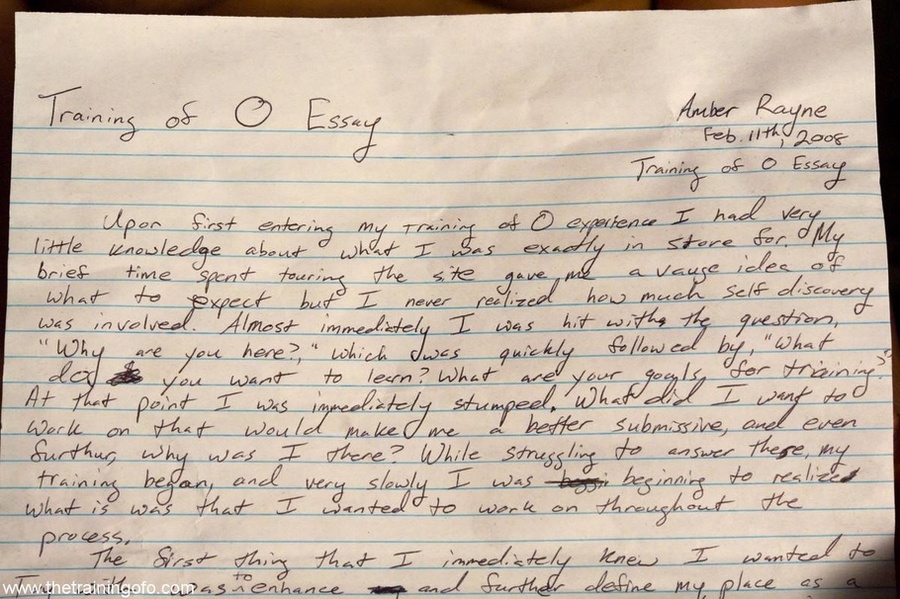 Training of O Essay
Amber Rayne
Feb. 11th, 2008
Training of O Essay
Upon first entering my Training of O experience I had very
little knowledge about what I was exactly in store for. My
brief time spent touring the site gave me a vauge idea of
what to expect but I never realized how much self discovery
was involved. Almost immediately I was hit with the question,
"Why are you here?," which was quickly followed by, "What
do you want to learn? What are your goals for training?"
At that point I was immediately stumped. What did I want to
work on that would make me a better submissive, and even
furthur, why was I there? While struggling to answer these, my
training began, and very slowly I was beginning to realize
what is was that I wanted to work on throughout the
process.
The first thing that I immediately knew I wanted to
was to enhance and further define my place as a
www.thetrainingofo.com